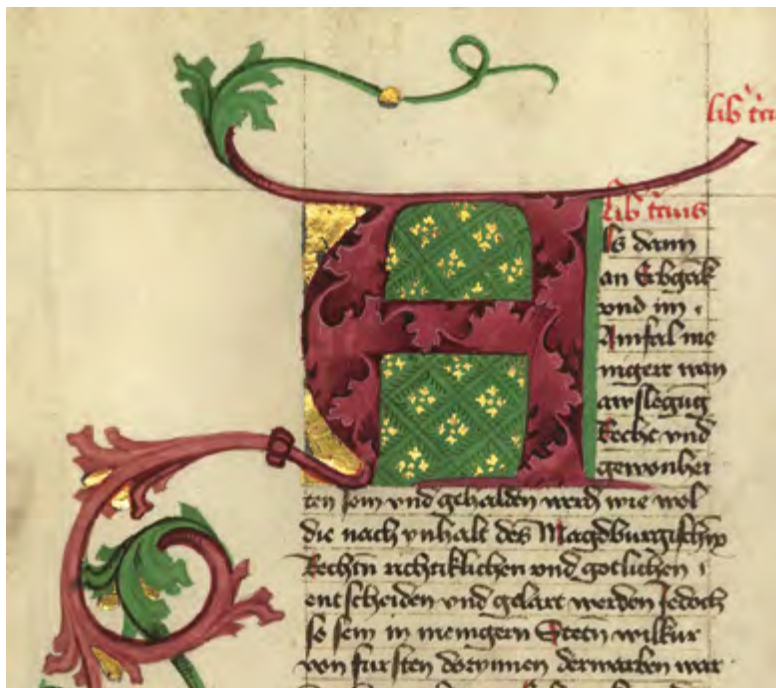 lib' t'cius
Lib' tercius
Als dann
an Erbgerk
vnd im
Amfal me
nigerr wan
awslegūg
Recht vnd
gewonhei
ten sein vnd gehalden werdn wie wol
die nach ynhalt des Magdburgischn
Rechtn richtiklichen vnd gotlichen
entscheiden vnd gelart werden Jedoch
so sein in menigern Steten wilkur
von fursten dorynnen derwarben war